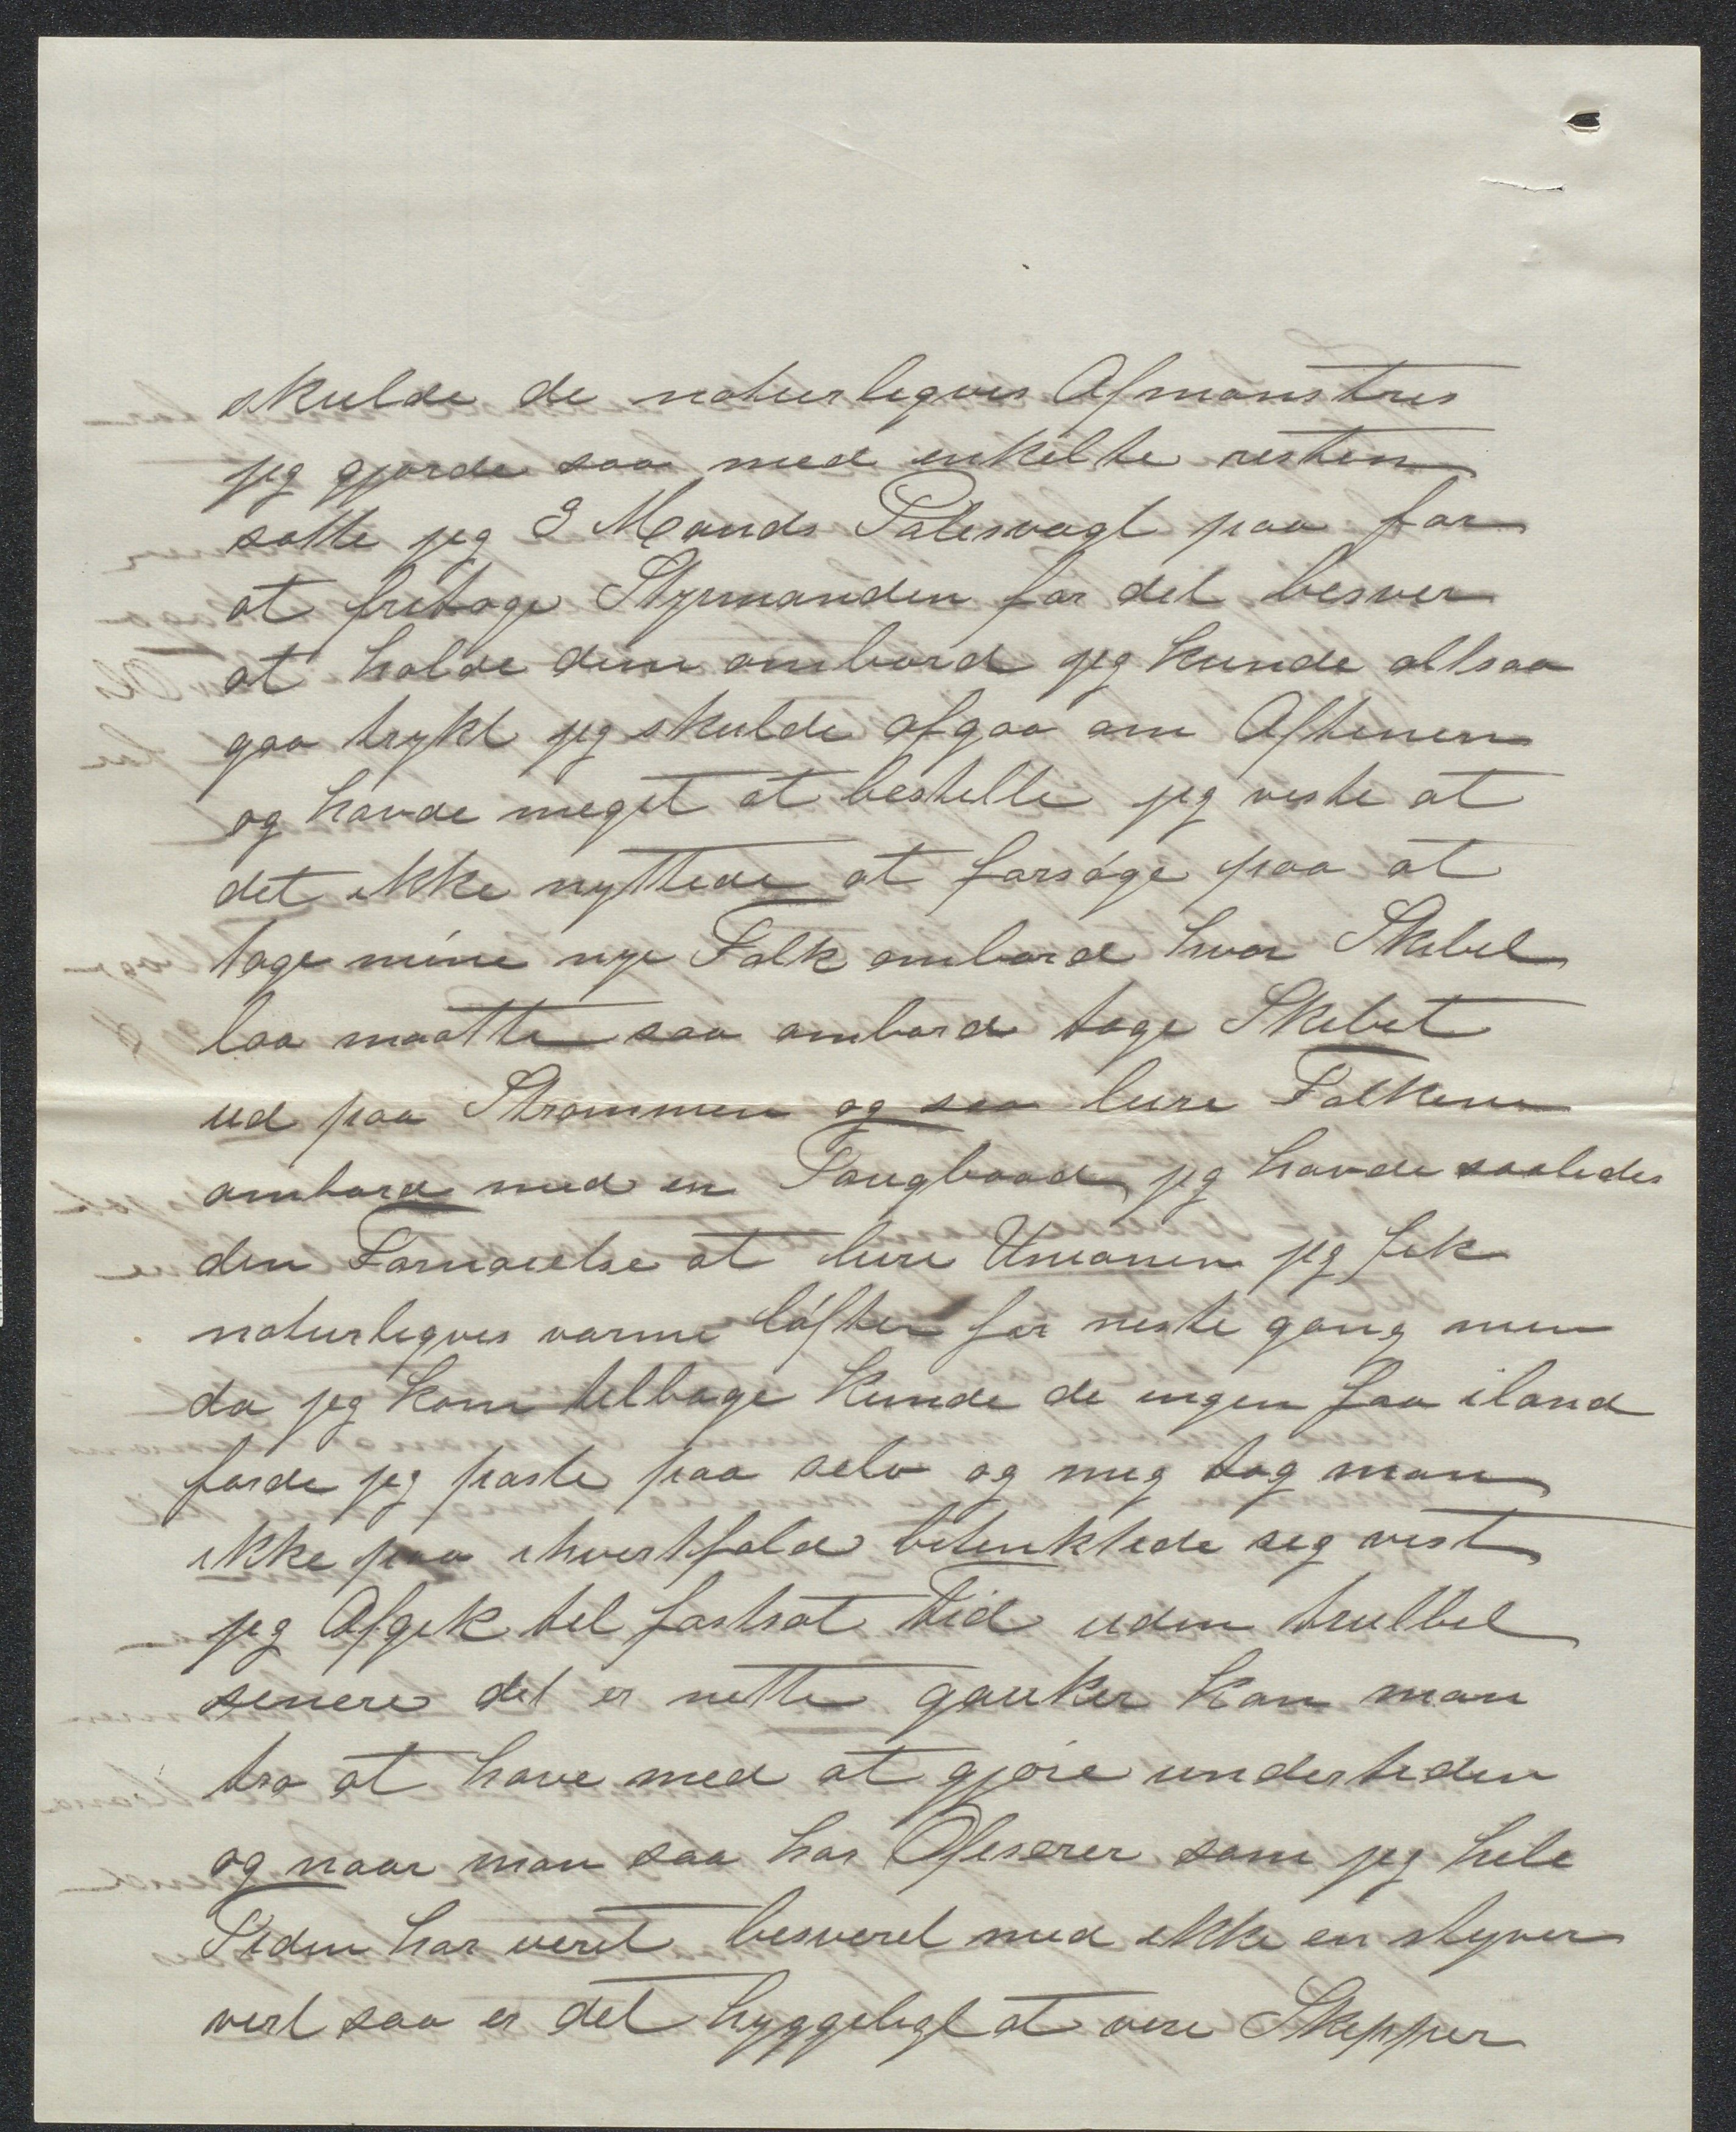 skulde de naturligvis Afmønstres
jeg gjorde saa med enkelte resten
satte jeg 3 Mands Politivagt paa for
at fritage Styrmanden for det besver
at holde dem ombord jeg kunde altsaa
gaa trykt jeg skulde afgaa om Aftenen
og havde meget at bestille jeg viste at
det ikke nyttede at forsøge paa at
tage mine nye Folk ombord hvor Skibet
laa maatte saa ombord tage Skibet
ud paa Strømmen og saa lure Folkene
ombord med en Taugbaad jeg havde saaledes
den Fornøielse at lure Unionen jeg fik
naturligvis varme løfter for neste gang men
da jeg kom tilbage kunde de ingen faa iland
forde jeg paste paa selv og mig tog man
ikke paa ihvertfald betenktede seg vist
jeg Afgik til fastsat Tid uden trubbel
senere det er nette gauker kan man
tro at have med at gjøre undertiden
og naar man saa har Ofiserer som jeg hele
Tiden har veret besveret med ikke en styver
vert saa er det hyggeligt at vere Skipper